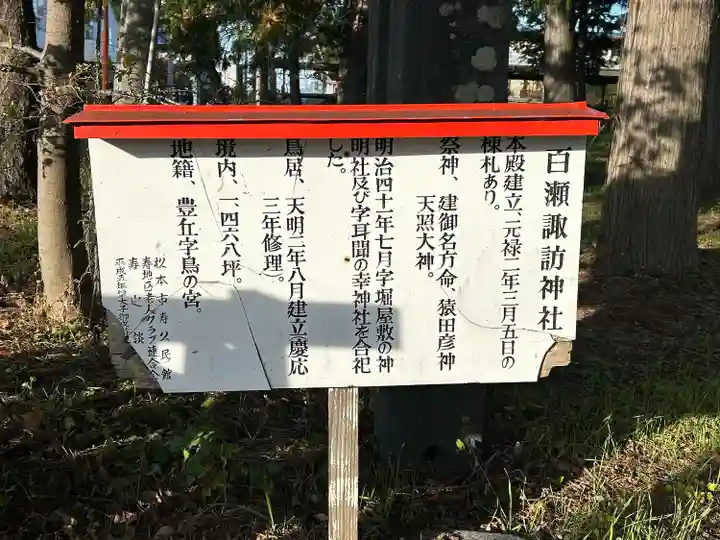 百瀬諏訪神社
本殿建立、元禄二年三月五日の
棟札あり。
祭神、建御名方命、猿田彦神
天照大神。
明治四十一年七月字堀屋敷の神
明社及び字耳聞の幸神社を合祀
した。
鳥居、天明二年八月建立慶応
三年修理。
境内、一四六八坪。
地籍、豊丘字鳥の宮。
松本市寿公民館
寿地区老人クラブ連合会